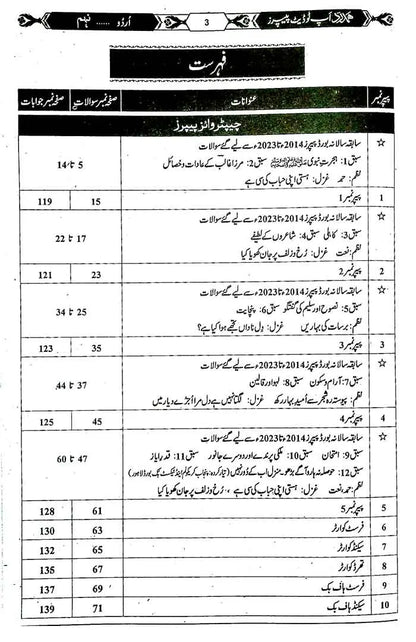 ہمدرد اپ ٹو ڈیٹ پیپرز 3 اُردو ...... نہم
فہرست
پیپر نمبر عنوانات صفحہ نمبر سوالات صفحہ نمبر جوابات
چیپٹر وائز پیپرز
☆ سابقہ سالانہ بورڈ پیپرز 2014ء تا 2023ء سے لیے گئے سوالات
سبق 1: ہجرت نبوی ﷺ سبق 2: مرزا غالب کے عادات و خصائل 5 تا 14
نظم: حمد غزل: ہستی اپنی حباب کی سی ہے
1 پیپر نمبر 1 15 119
☆ سابقہ سالانہ بورڈ پیپرز 2014ء تا 2023ء سے لیے گئے سوالات
سبق 3: کاہلی سبق 4: شاعروں کے لطیفے 17 تا 22
نظم: نعت غزل: رُخ و زلف پر جان کھویا کیا
2 پیپر نمبر 2 23 121
☆ سابقہ سالانہ بورڈ پیپرز 2014ء تا 2023ء سے لیے گئے سوالات
سبق 5: نصوح اور سلیم کی گفتگو سبق 6: پنچایت 25 تا 34
نظم: برسات کی بہاریں غزل: دلِ ناداں تجھے ہوا کیا ہے؟
3 پیپر نمبر 3 35 123
☆ سابقہ سالانہ بورڈ پیپرز 2014ء تا 2023ء سے لیے گئے سوالات
سبق 7: آرام و سکون سبق 8: لہو اور قالین 37 تا 44
نظم: پیوستہ رہ شجر سے اُمیدِ بہار رکھ غزل: لگتا نہیں ہے دل مرا اُجڑے دیار میں
4 پیپر نمبر 4 45 125
☆ سابقہ سالانہ بورڈ پیپرز 2014ء تا 2023ء سے لیے گئے سوالات
سبق 9: امتحان سبق 10: ملکی پرندے اور دوسرے جانور سبق 11: قدرِ ایاز 47 تا 60
سبق 12: حوصلہ نہ ہارو آگے بڑھو منزل اب کے دُور نہیں (تیار کردہ: پنجاب کریکولم اینڈ ٹیکسٹ بک بورڈ لاہور)
نظم: حمد، نعت غزل: ہستی اپنی حباب کی سی ہے ، رُخ و زلف پر جان کھویا کیا
5 پیپر نمبر 5 61 128
6 فرسٹ کوارٹر 63 130
7 سیکنڈ کوارٹر 65 132
8 تھرڈ کوارٹر 67 135
9 فرسٹ ہاف بک 69 137
10 سیکنڈ ہاف بک 71 139